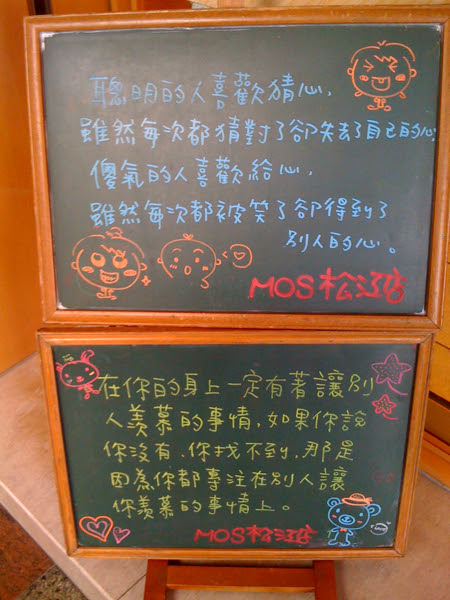 聰明的人喜歡猜心，
雖然每次都猜對了卻失去了自己的心；
傻氣的人喜歡給心，
雖然每次都被笑了卻得到了
別人的心。
MOS松江店
在你的身上一定有著讓別
人羨慕的事情，如果你說
你沒有，你找不到，那是
因為你都專注在別人讓
你羨慕的事情上。
MOS松江店